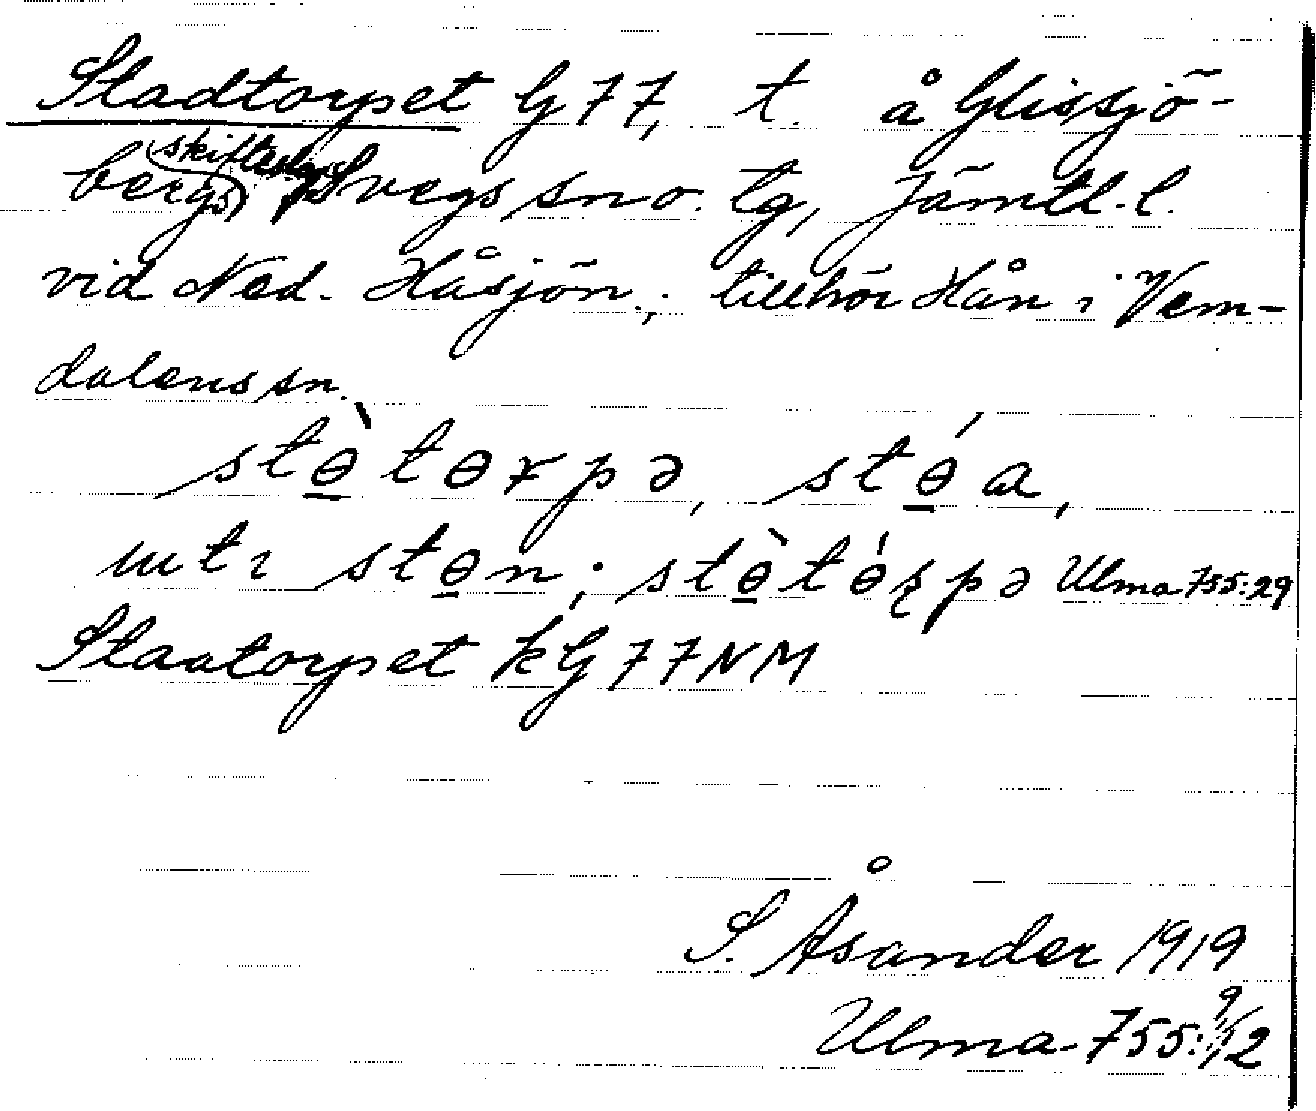 Stadtorpet G 77, t. å Glissjö-
bergs skifteslag Svegs sn o. tg, Jämtl. l.
vid Ned. Håsjön; tillhör Hån i Vem-
dalens sn.
stɵ̀tɵrpə, stɵ́a,
inti stɵn; stɵ̀tɵ́rpə Ulma 755:29
Staatorpet kG 77 NM
S. Åsander 1919
Ulma 755: 9/12